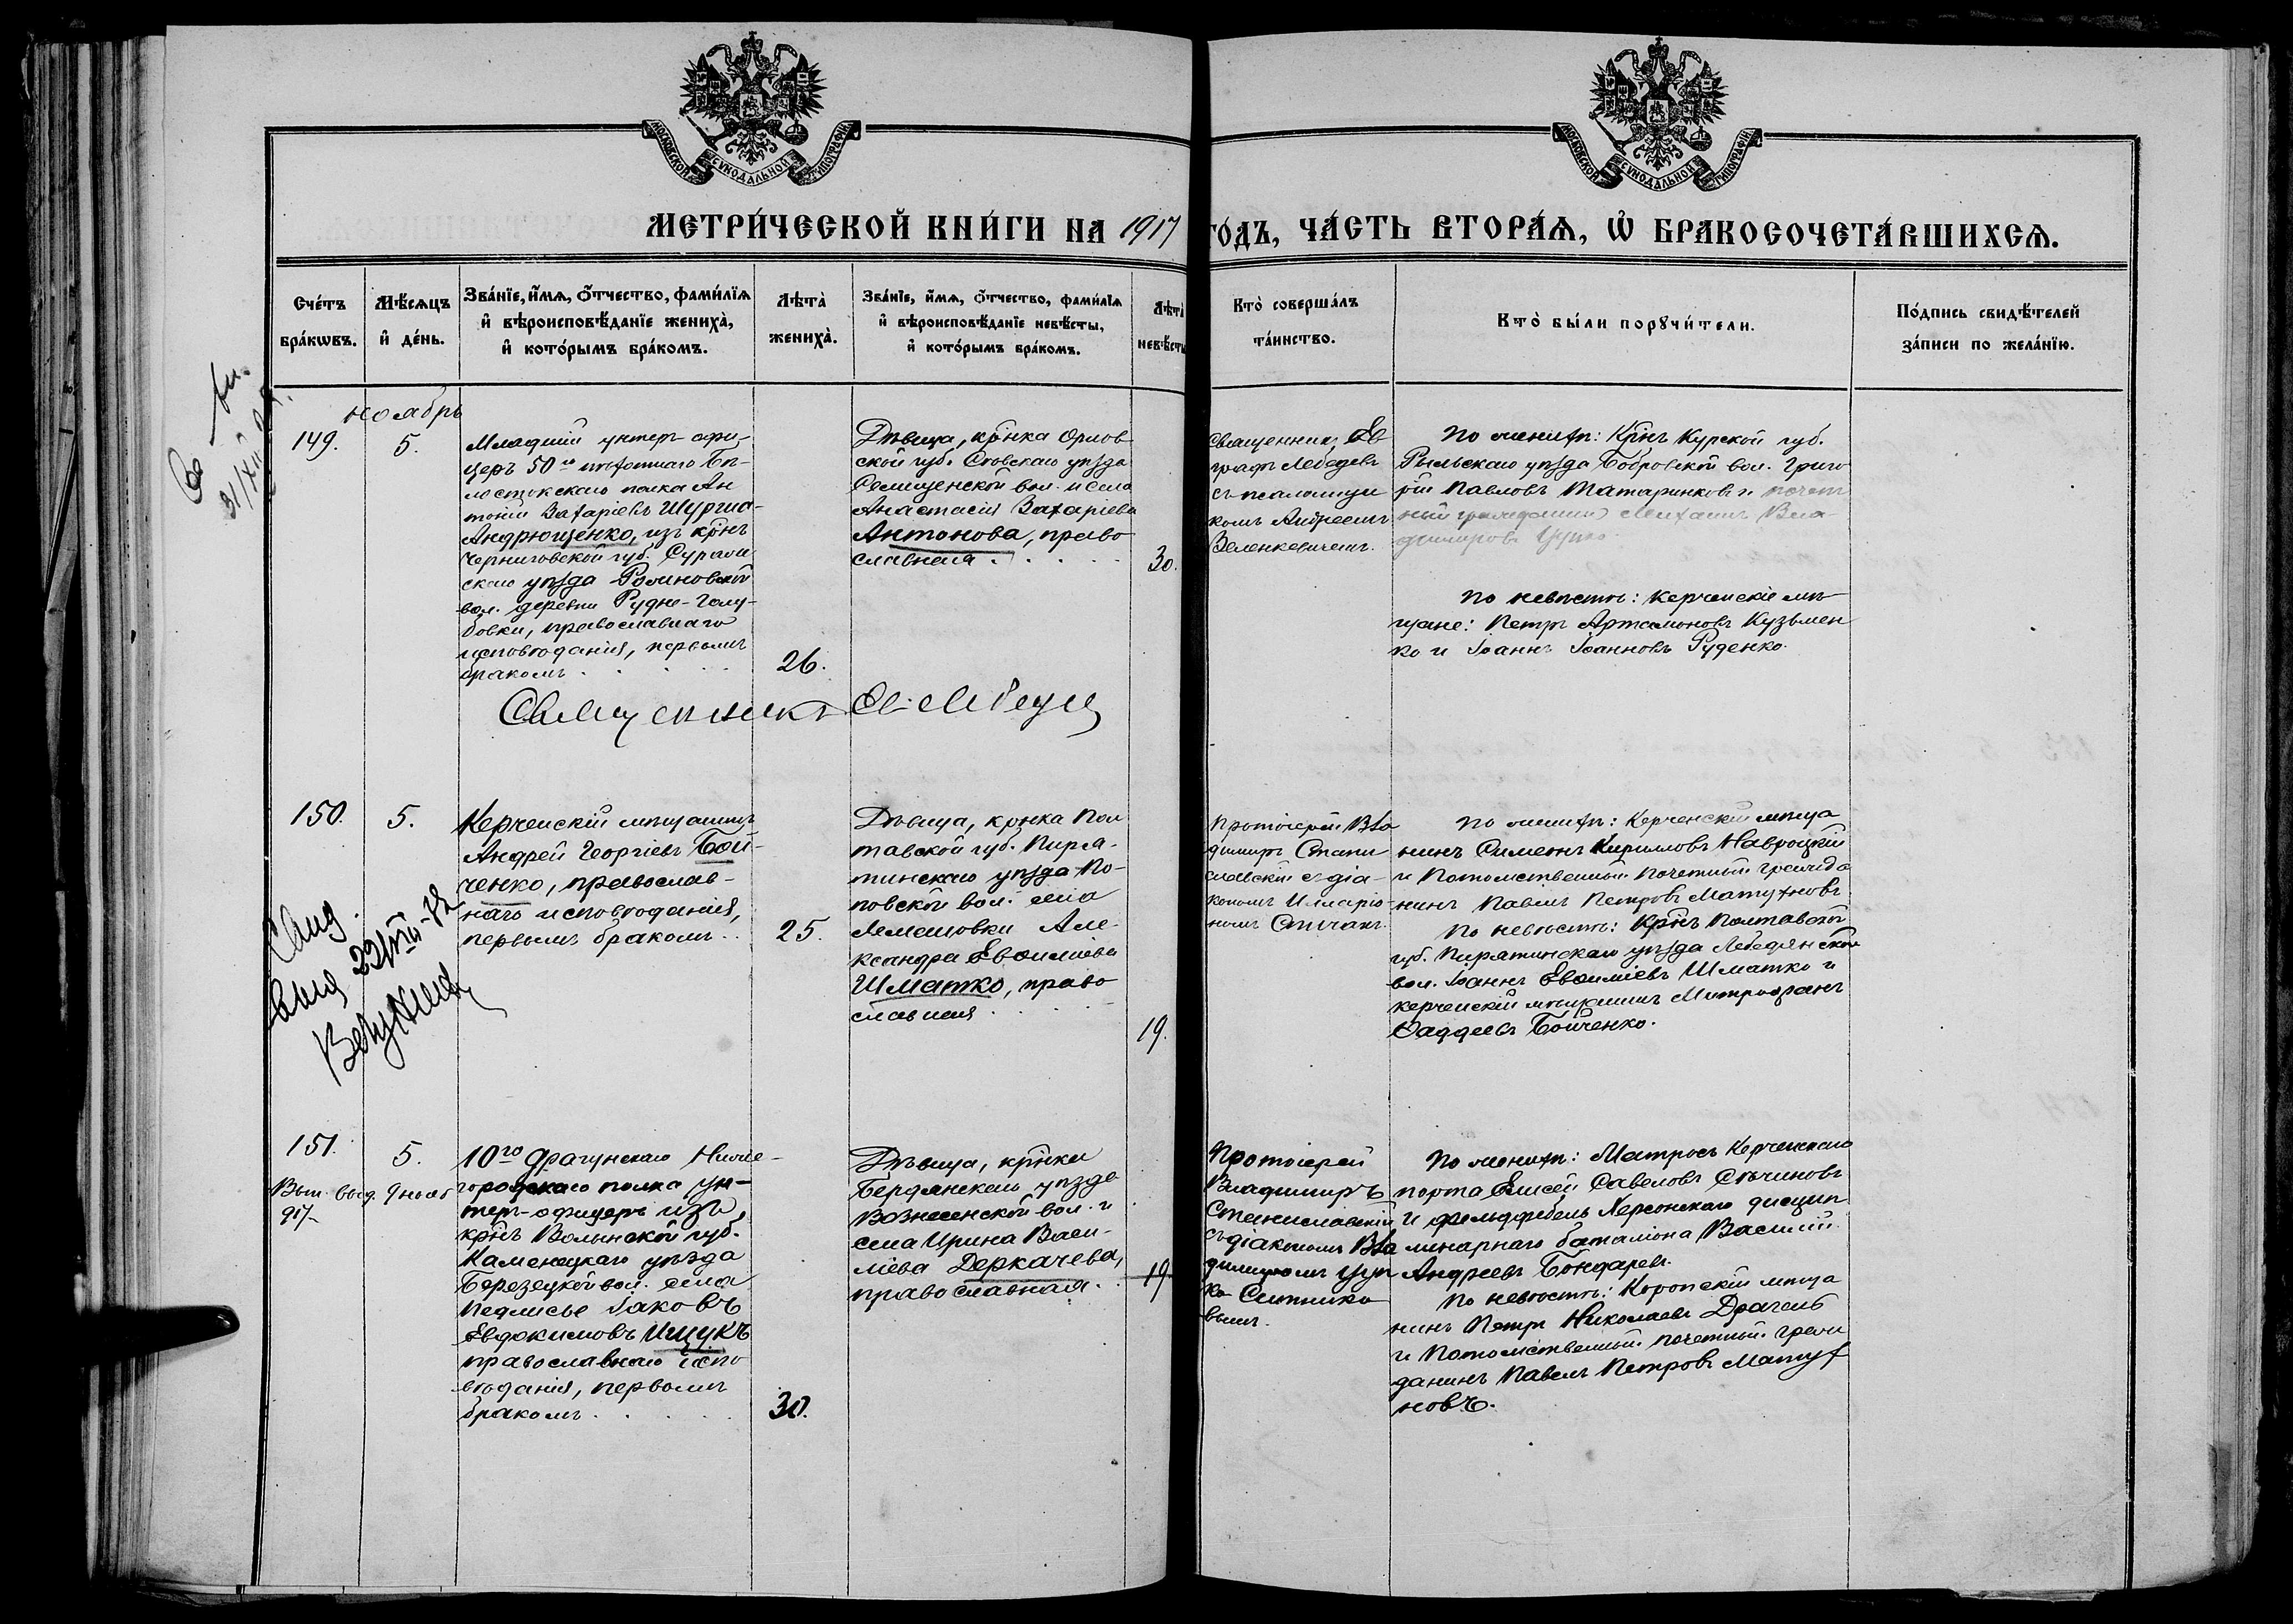 МОСКОВСКОЙ СѴНОДАЛЬНОЙ ТИПОГРАФІИ
МОСКОВСКОЙ СѴНОДАЛЬНОЙ ТИПОГРАФІИ
МЕТРИ́ЧЕСКОЙ КНИ́ГИ НА 1917
ГО́ДЪ, ЧА́СТЬ ВТОРА́Ѧ, Ѡ҆ БРАКОСОЧЕТА́ВШИХСѦ.
Сче́тъ
бра́кѡвъ.
Мѣ́сѧцъ
и҆ де́нь.
Зва́нїе, и҆́мѧ, ѻ҆́тчество, фами́лїѧ
и҆ вѣроисповѣ́данїе жениха̀,
и҆ кото́рымъ бра́комъ.
Лѣта̀
жениха̀.
Зва́нїе, и҆́мѧ, ѻ҆́тчество, фами́лїѧ
и҆ вѣроисповѣ́данїе невѣ́сты,
и҆ кото́рымъ бра́комъ.
Лѣта̀
невѣ́сты
Кто̀ соверша́лъ
та́инство.
Кто̀ бы́ли порꙋчи́тели.
По́дпись свидѣ́телей
за́писи по жела́нїю.
ноябрь
149.
5.
Младшій унтер-офи-
церъ 50го пѣхотнаго Бѣ-
лостокскаго полка Ан
тоній Захаріевъ Шургио-
Андрющенко, изъ кр̃нъ
Черниговской губ. Суражи
скаго уѣзда
вол. деревни Рудне-Голу-
бовки, православнаго
исповѣданія, первымъ
бракомъ . . . .
26.
Дѣвица, кр̃нка Орлов
ской губ. Сѣвскаго уѣзда
Селищенской вол. и села
Анастасія Захаріева
Антонова, право
славная . . . . .
30.
Священник Ев
графъ Лебедевъ
съ псаломщи
комъ Андреемъ
Зеленкевичемъ.
По жениху: Кр̃нъ Курской губ.
Рыльскаго уѣзда Бобровской вол. Григо
рій Павловъ Татаринковъ и почет
ный гражданинъ Михаилъ Вла
димировъ
По невѣстѣ: Керченскіе мѣ-
щане: Петръ Артамоновъ Кузьмен
ко и Іоаннъ Іоанновъ Руденко.
Священникъ Е. Лебедев
31/XII
150.
5.
Керченскій мѣщанинъ
Андрей Георгіевъ Бой-
ченко, православ-
наго исповѣданія,
первымъ бракомъ . .
25.
Дѣвица, кр̃нка Пол
тавской губ. Пиря-
тинскаго уѣзда По-
повской вол. села
Лемешовки Але-
ксандра Евѳиміева
Шматко, право
славная . . . .
19.
Протоіерей Вла
димиръ Стани
славскій с діа-
кономъ Илларіо-
номъ Спичакъ.
По жениху: Керченскій мѣща
нинъ Симеонъ Кирилловъ Навроцкій
и Потомственный почетный гражда
нинъ Павелъ Петровъ Матухновъ.
По невѣстѣ: Кр̃нъ Полтавской
губ. Пирятинскаго уѣзда Лебедянской
вол. Іоаннъ Евѳиміевъ Шматко и
керченскій мѣщанинъ Митрофанъ
Ѳаддеевъ Бойченко.
151.
5.
Вып. выд. 9 нояб
917
10го драгунскаго Ниже-
городскаго полка ун-
тер-офицеръ изъ
кр̃нъ Волынской губ.
Каменецкаго уѣзда
Березецкой вол. села
Педлисье Іаковъ
Евдокимовъ Ищукъ
православнаго испо
вѣданія, первымъ
бракомъ . . . .
30.
Дѣвица, кр̃нка
Бердянскаго уѣзда
Вознесенской вол. и
села Ирина Васи-
ліева Деркачева,
православная. .
19.
Протоіерей
Владимиръ
Станиславскій
съ діакономъ Вла
димиромъ
Ситнико
вымъ.
По жениху: Матросъ Керченскаго
порта Елисей Савеловъ Спичиновъ
и фельдфебель Херсонскаго дисцип
линарнаго баталіона Василій
Андреевъ Бондаревъ.
По невѣстѣ: Коропскій мѣща
нинъ Петръ Николаевъ Драгель
и Потомственный почетный граж
данинъ Павелъ Петровъ Матух
новъ.